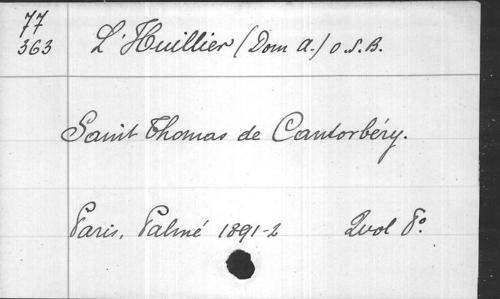 77
363
L'Huillier (Dom A.) O.S.B.
Saint Thomas de Cantorbéry.
Paris, Palmé 1891-2 2vol 8º.